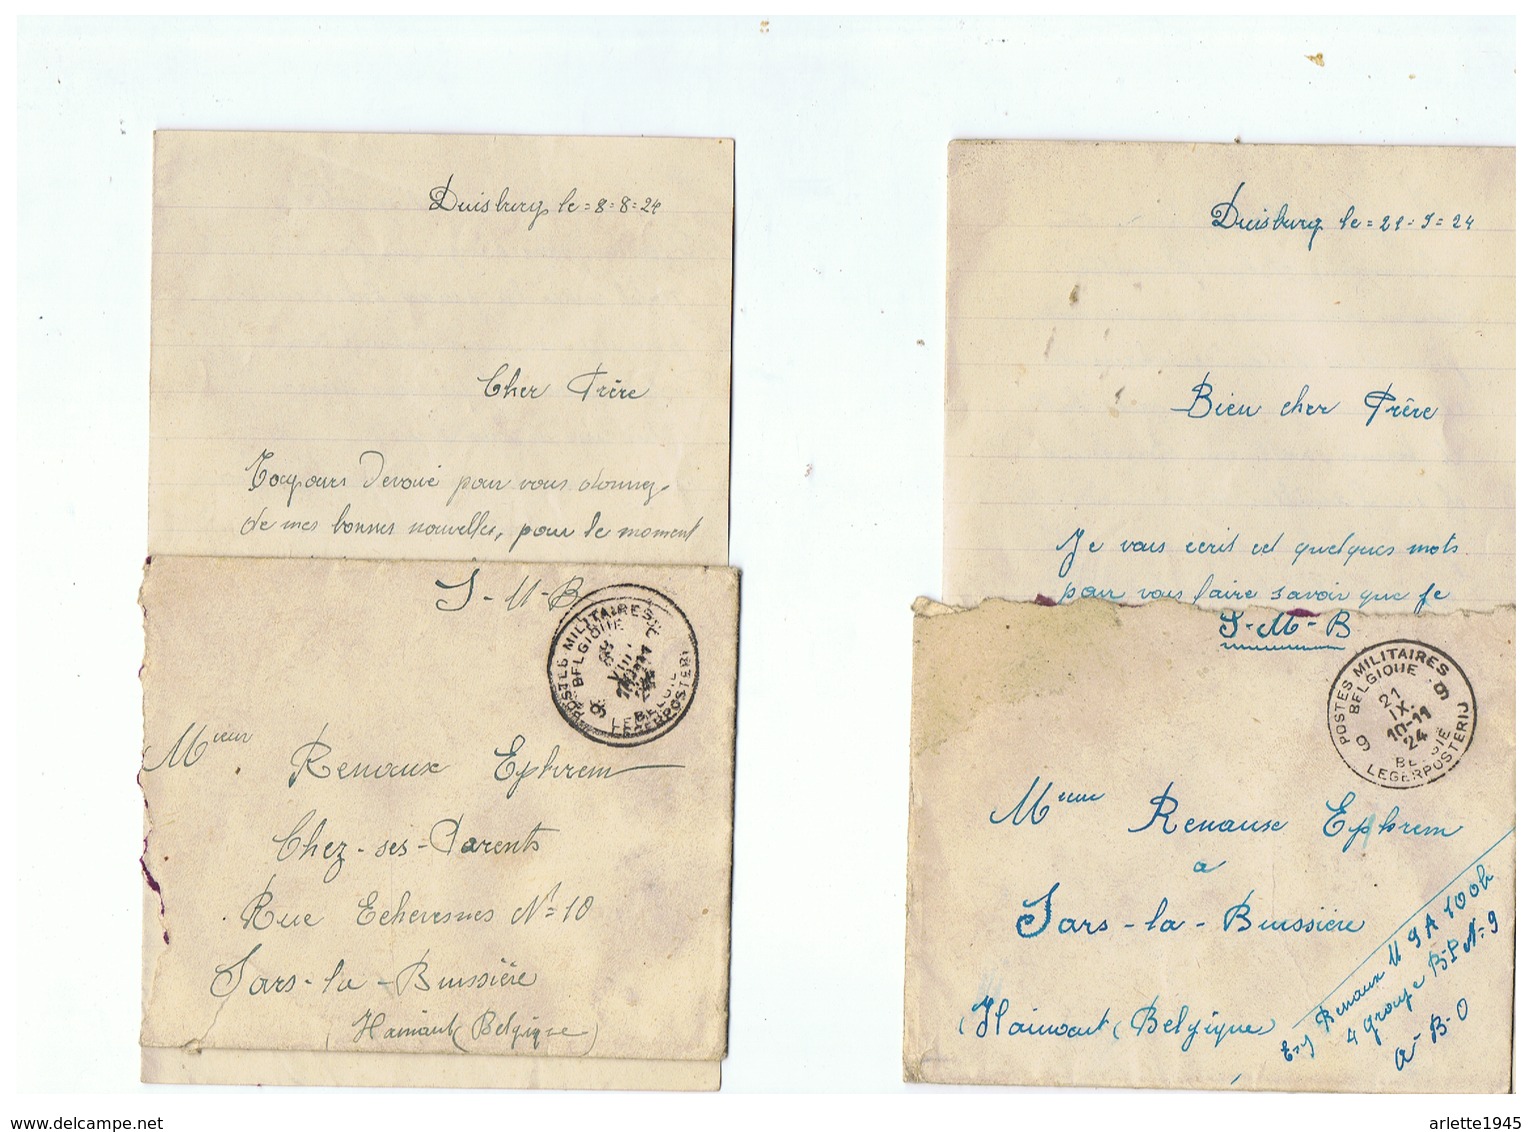 Duisburg le = 8 = 8 = 24
Cher Frère
Toujours Devoué pour vous donnez
de mes bonnes nouvelles, pour le moment
S - M - B
POSTES MILITAIRES
BELGIQUE
VIII
BELGIE
LEGERPOSTERIJ
Mr Renaux Ephrem
Chez - ses - Parents
Rue Echevesnes No = 10
Sars - la - Buissière
(Hainaut (Belgique)
Duisburg le = 21 - 9 = 24
Bien cher Frère
Je vous ecrit cet quelques mots
pour vous faire savoir que je
S - M - B
9 POSTES MILITAIRES 9
BELGIQUE
21
IX.
10-11
24
BELGIE
LEGERPOSTERIJ
Renaux Ephrem
a
Sars - la - Buissière
(Hainaut (Belgique)
Exp Renaux M 9 A 100b
4 groupe B-P N = 9
a - B - O
delcampe.net
arlette1945